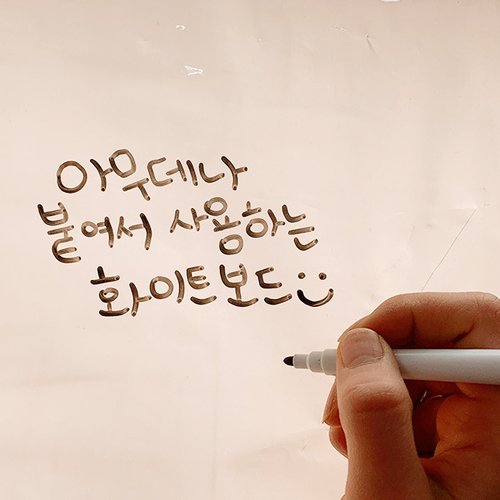 아무데나
붙여서 사용하는
화이트보드:)